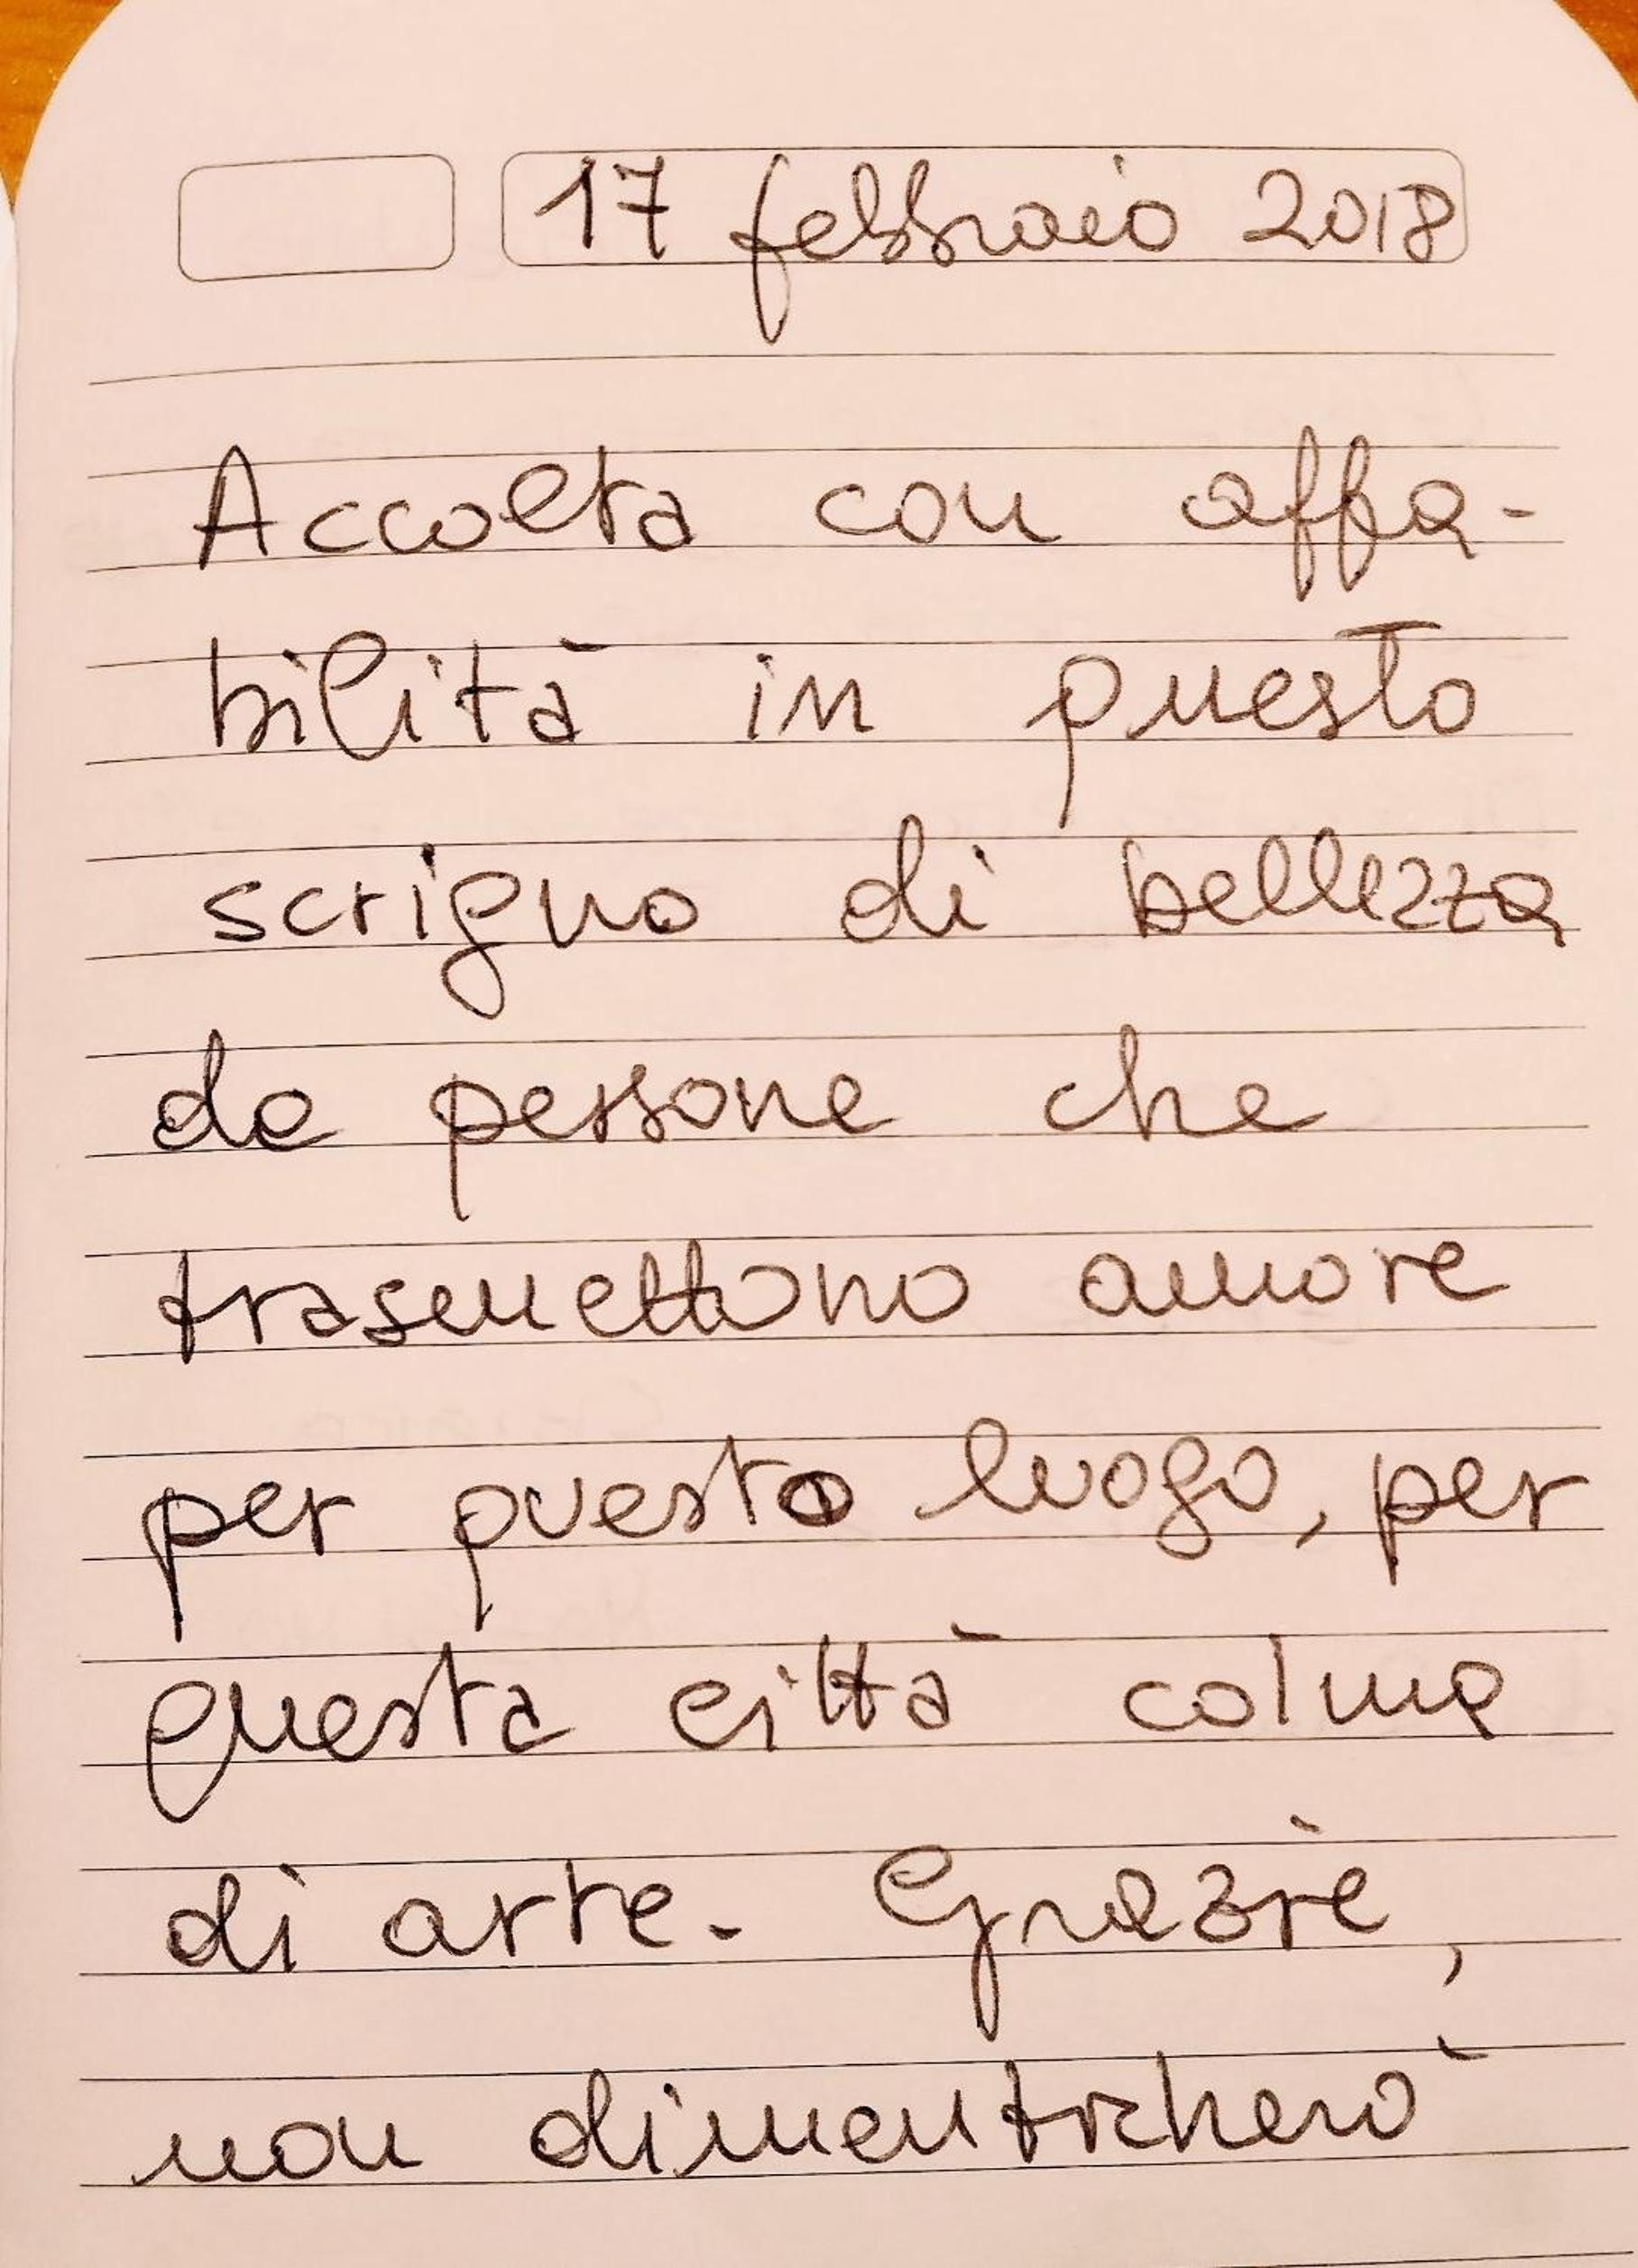 17 febbraio 2018
Accolta con affa-
bilità in questo
scrigno di bellezza
da persone che
trasmettono amore
per questo luogo, per
questa città colma
di arte. Grazie,
non dimenticherò